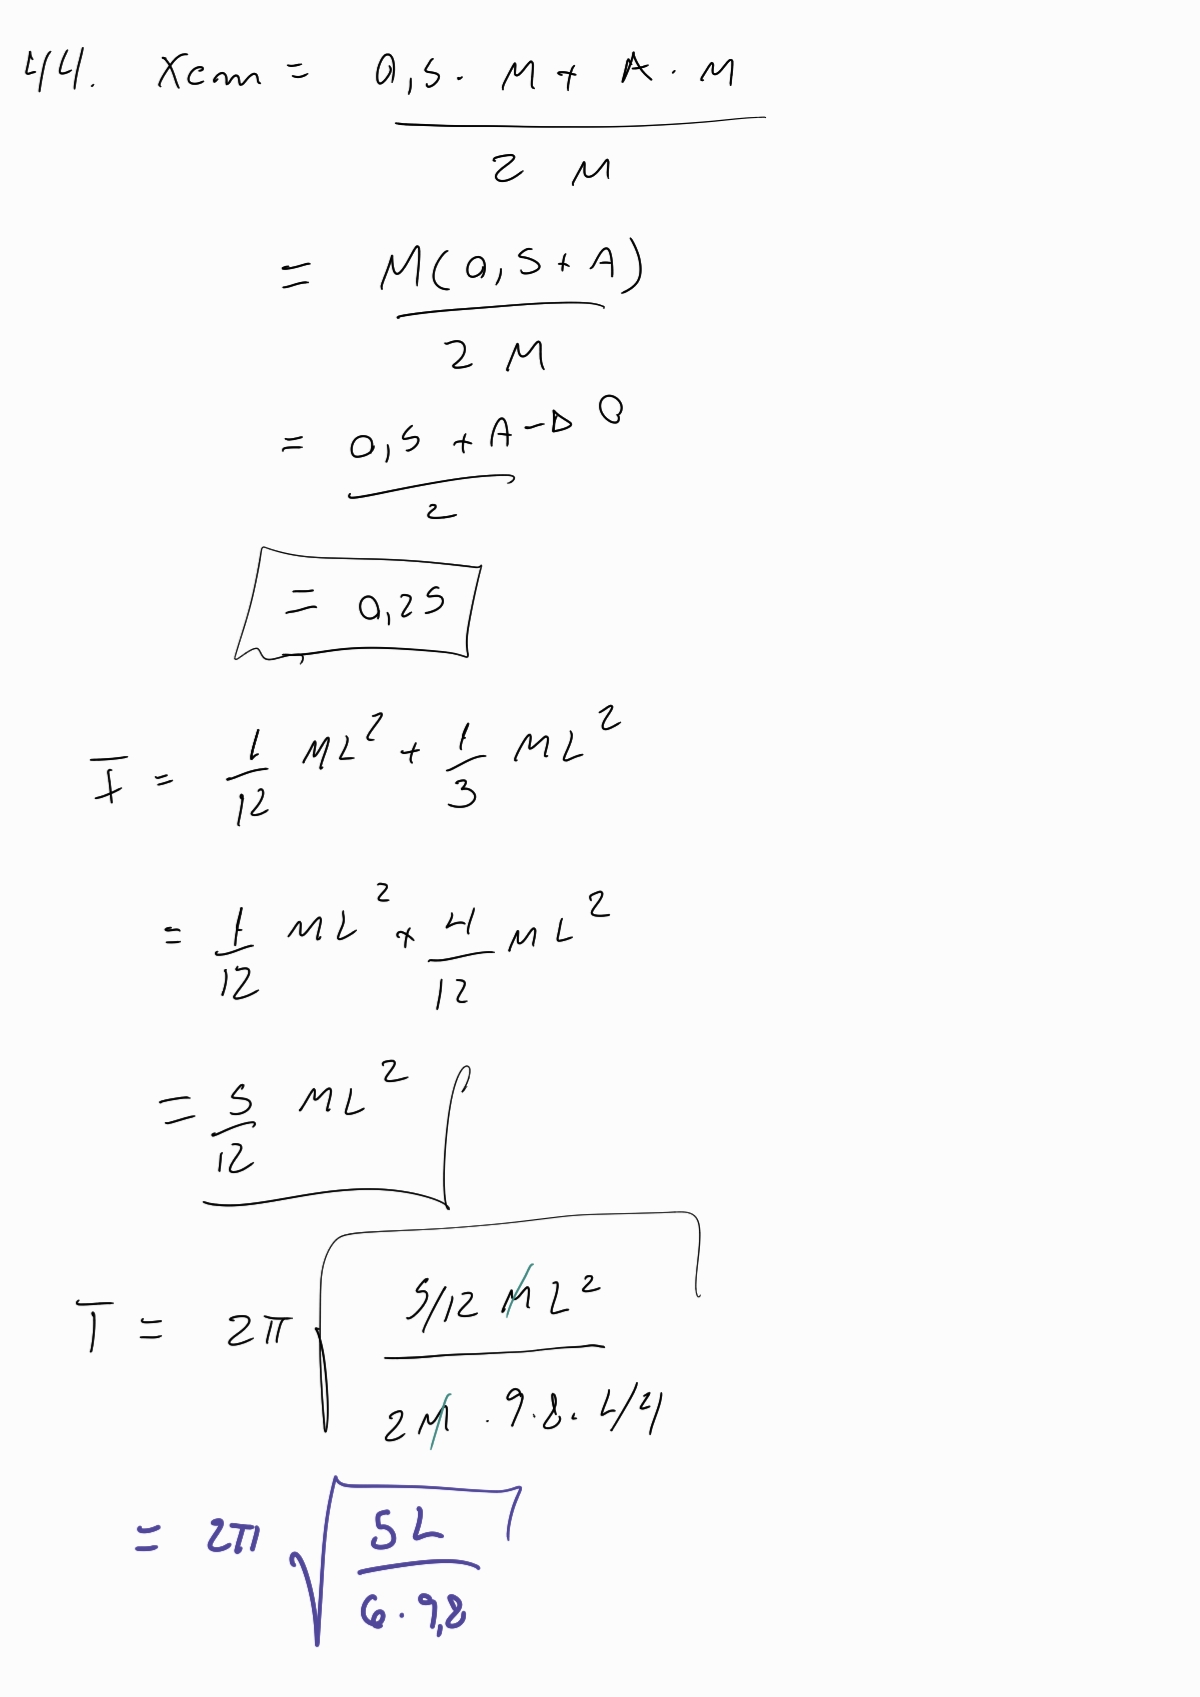 44. Xcm = 0,5 · M + A · M
2 M
= M(0,5 + A)
2 M
= 0,5 + A → 0
2
= 0,25
I = 1/12 ML² + 1/3 ML²
= 1/12 ML² + 4/12 ML²
= 5/12 ML²
T = 2π √ 5/12 ML²
2M · 9.8 · L/4
= 2π √ 5L
6 · 9,8